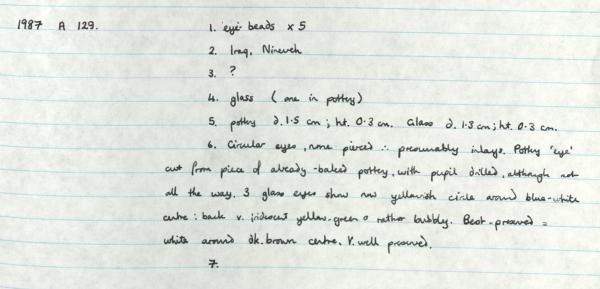 1987 A 129. 1. eye-beads x 5
2. Iraq, Nineveh
3. ?
4. glass (one in pottery)
5. pottery d. 1.5 cm; ht. 0.3 cm. Glass d. 1.3 cm; ht. 0.3 cm.
6. Circular eyes, none pierced ∴ presumably inlays. Pottery 'eye'
cut from piece of already-baked pottery, with pupil drilled, although not
all the way. 3 glass eyes show now yellowish circle around blue-white
centre: back v. iridescent yellow-green & rather bubbly. Best-preserved =
white around dk. brown centre. V. well preserved.
7.